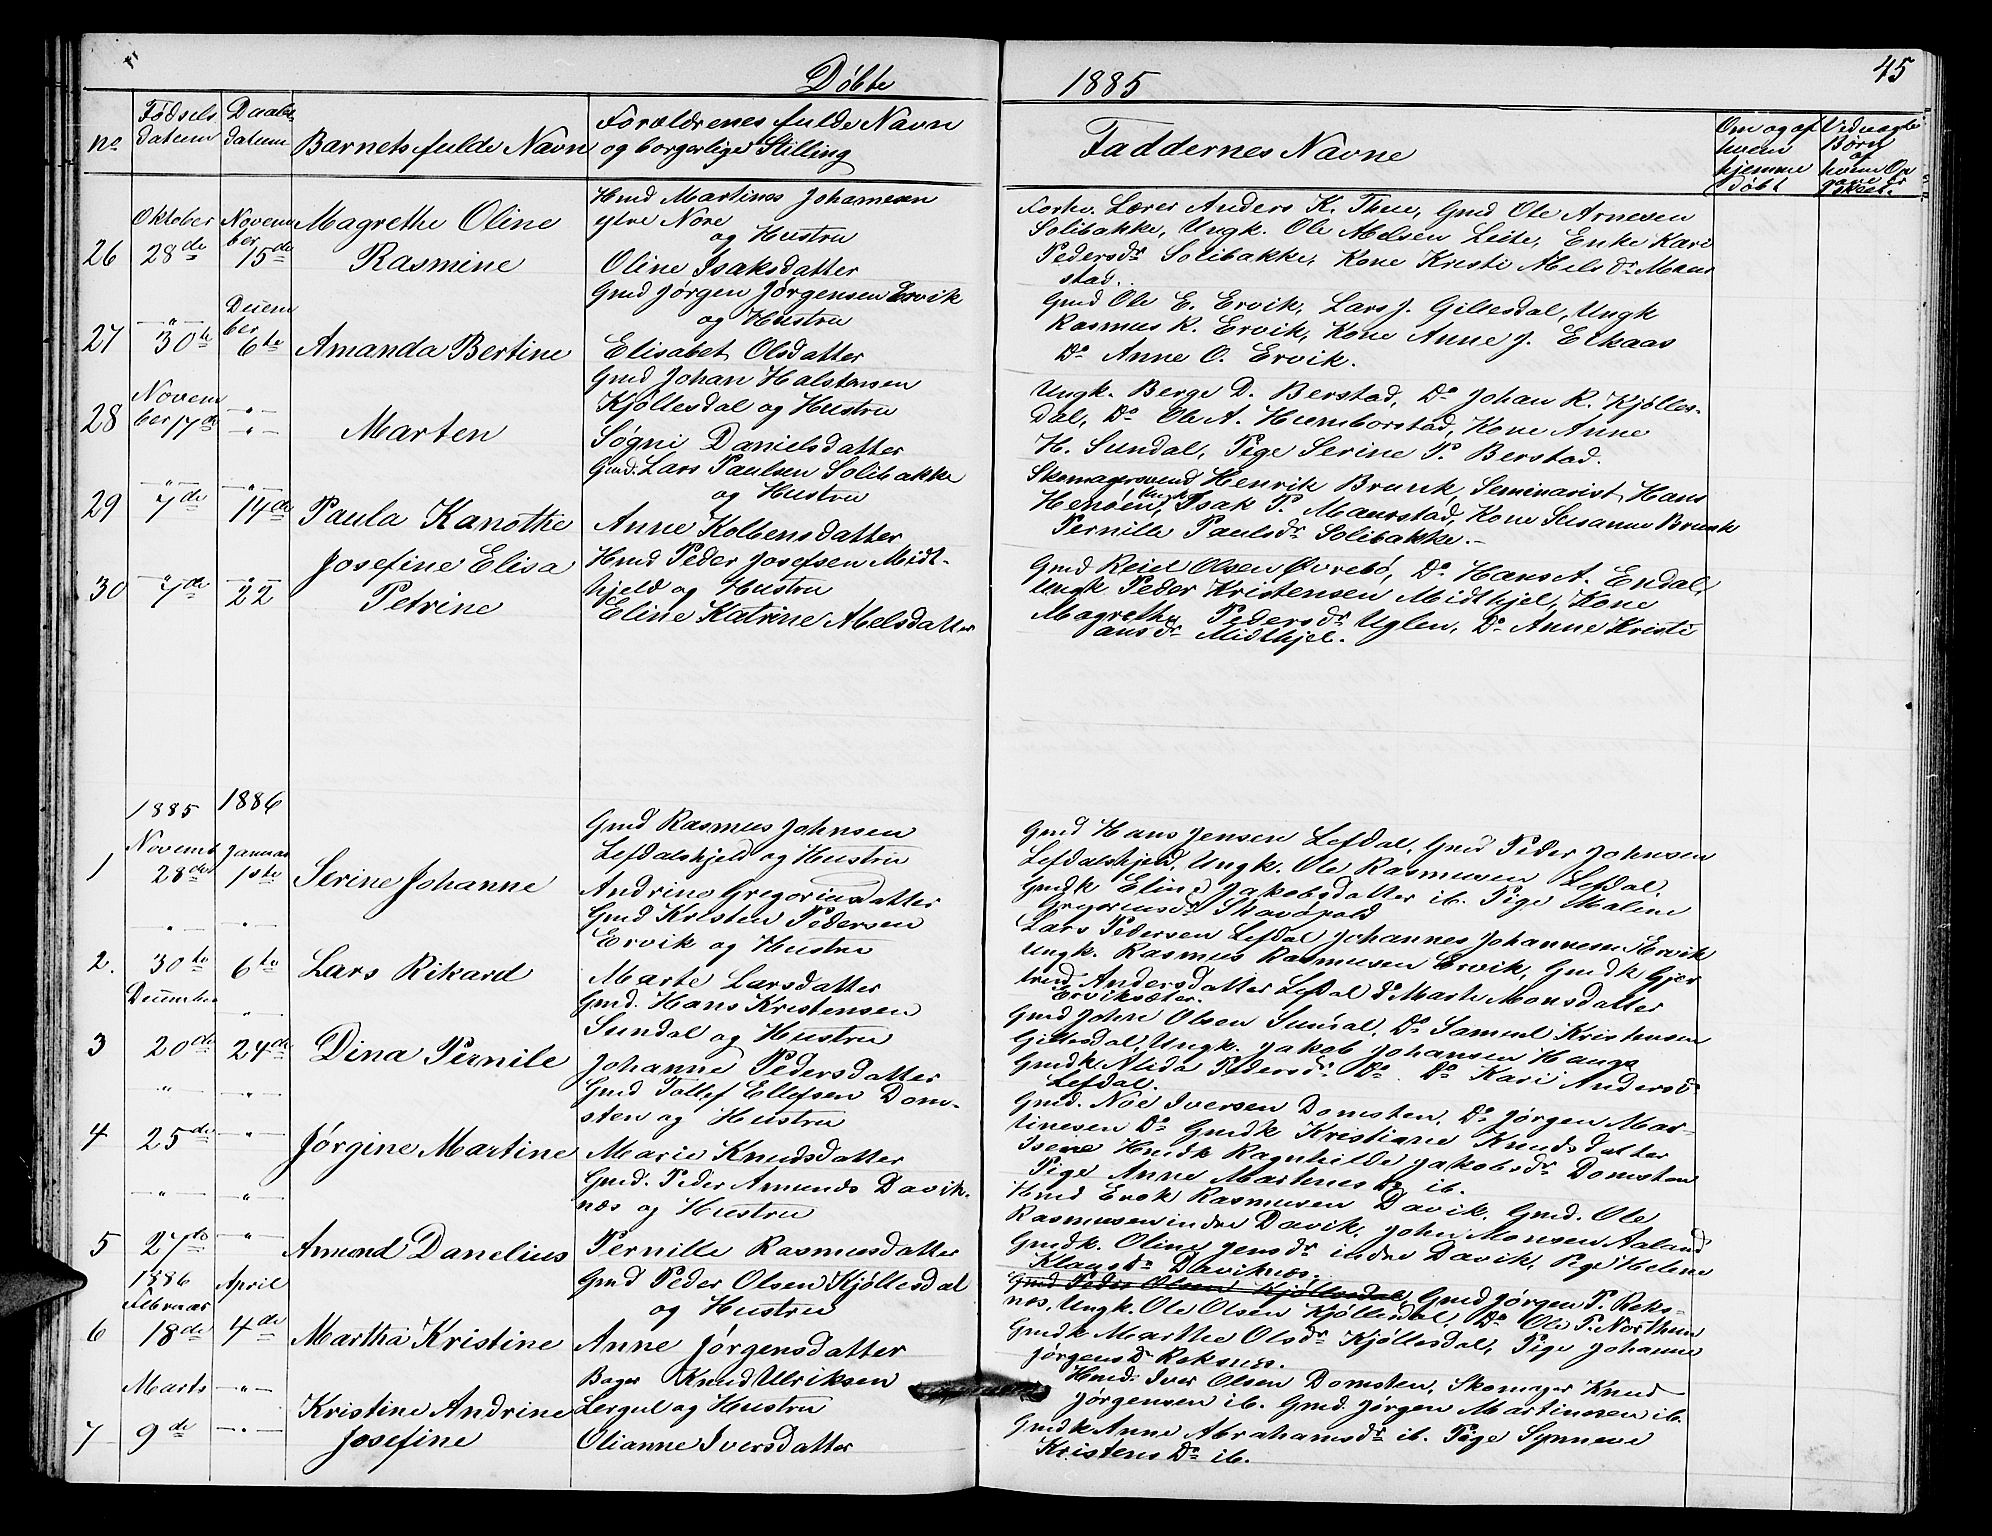 Døbte 1885 45
No
Fødsels datum
Daabs datum
Barnets fulde Navn
Forældrenes fulde Navn
og borgerlige Stilling
Faddernes Navne
Om og af hvem hjemme døbt
26
Oktober 28de
November 15de
Magrethe Oline
Rasmine
Hmd Martinus Johannesen
ytre Nore
og Hustru
Oline Isaksdatter
Forhv. Lærer Anders K. Thue, Gmd Ole Arnesen
Solibakke, Ungk. Ole Abelsen Leite, Enke Kari
Pedersdr Solibakke, Kone Kristi Nielsdr Maur
stad.
27
—"— 30te
December 6te
Amanda Bertine
Gmd Jørgen Jørgensen Ervik
og Hustru
Elisabet Olsdatter
Gmd Ole E. Ervik, Lars J. Gillesdal, Ungk
Rasmus K. Ervik, Kone Anne J. Eikaas
Do Anne O. Ervik.
28
November 17de
—"—
—"—
Marten
Gmd Johan Halstensen
Kjøllesdal og Hustru
Søgni Danielsdatter
Ungk. Berge D. Berstad, Do Johan R. Kjølles-
dal, Do Ole A. Humborstad, Kone Anne
H. Sundal, Pige Serine P. Berstad.
29
—"— 7de
—"— 14de
Paula Kanothe
Gmd. Lars Paulsen Solibakke
og Hustru
Anne Kolbensdatter
Skomagersvend Henrik Brunk, Seminarist Hans
Henøen, Ungk Isak P. Maurstad, Kone Susanne Brunk
Pernille Paulsdr Solibakke.—
30
—"— 7de
—"— 22
Josefine Elisa
Petrine
Hmd Peder Josefsen Midt-
hjeld og Hustru
Eline Katrine Abelsdatter
Gmd Reiel Olsen Øvrebø, Do Hans A. Endal,
Ungk Peder Kristensen Midthjel, Kone
Magrethe Pedersdr Uglen, Do Anne Kristi
ansdr Midthjel.
1885
1886
1
Novemb 28de
Januar 1ste
Serine Johanne
Gmd Rasmus Johnsen
Lefdalshjeld og Hustru
Andrine Gregoriusdatter
Gmd Hans Jensen Lefdal, Gmd Peder Johnsen
Lefdalshjeld, Ungk. Ole Rasmusen Lefdal.
Gmdk Eline Jakobsdatter ib. Pige Malene
2.
—"— 30te
—"— 6te
Lars Rikard
Gmd Kristen Pedersen
Ervik og Hustru
Marte Larsdatter
Lars Pedersen Lefdal Johannes Johannesen Ervik
Ungk. Rasmus Rasmusen Ervik, Gmdk Gjer
trud Andersdatter Lefdal do Marte Monsdatter
Erviksæter.
3
December 20de
—"— 24de
Dina Pernile
Gmd. Hans Kristensen
Sundal og Hustru
Johanne Pedersdatter
Gmd John Olsen Sundal, Do Samuel Kristensen
Gillesdal, Ungk. Jakob Johansen Hauge
Gmdk Alida Pedersdr Do. Do Kari Andersd
Lefdal.
4
—"— 25de
—"—
—"—
Jørgine Martine
Gmd Tollef Ellefsen Dom-
sten og Hustru
Marie Knudsdatter
Gmd. Noe Iversen Domsten, Do Jørgen Mar-
tinesen Do Gmdk Kristiane Knudsdatter
Hmdk Ragnhilde Jakobsdr Domsten
Pige Anne Martines Dr ib.
5
—"— 27de
—"—
—"—
Amund Danelius
Gmd. Peder Amunds Davik-
næs og Hustru
Pernille Rasmusdatter
Hmd Erik Rasmusen Davik, Gmd. Ole
Rasmusen indre Davik, John Monsen Aaland
Gmdk. Oline Jensdr indre Davik, Pige Helene
Klausdr Daviknæs.
6
1886
Februar 18de
April 4de
Martha Kristine
Gmd Peder Olsen Kjøllesdal
og Hustru
Anne Jørgensdatter
Gmd Peder Olsen Kjøllesdal, Gmd Jørgen P. Reks-
nes, Ungk. Ole Olsen Kjøllesdal, Do Ole P. Northun
Gmdk Marthe Olsdr Kjøllesdal, Pige Johanne
Jørgens Dr Reksnes.
7
Marts 9de
—"—
—"—
Kristine Andrine
Josefine
Bager Knud Ulriksen
Lergul og Hustru
Olianne Iversdatter
Hmd. Iver Olsen Domsten, Skomager Knud
Jørgensen ib. Gmd. Jørgen Martinusen ib.
Gmdk Anne Abrahamsdr ib. Pige Synneve
Kristens Dr ib.